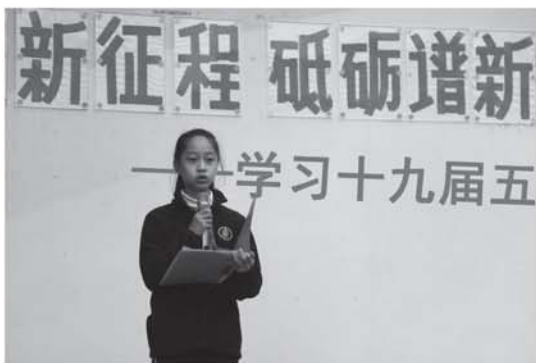 新征程 砥砺谱新
——学习十九届五